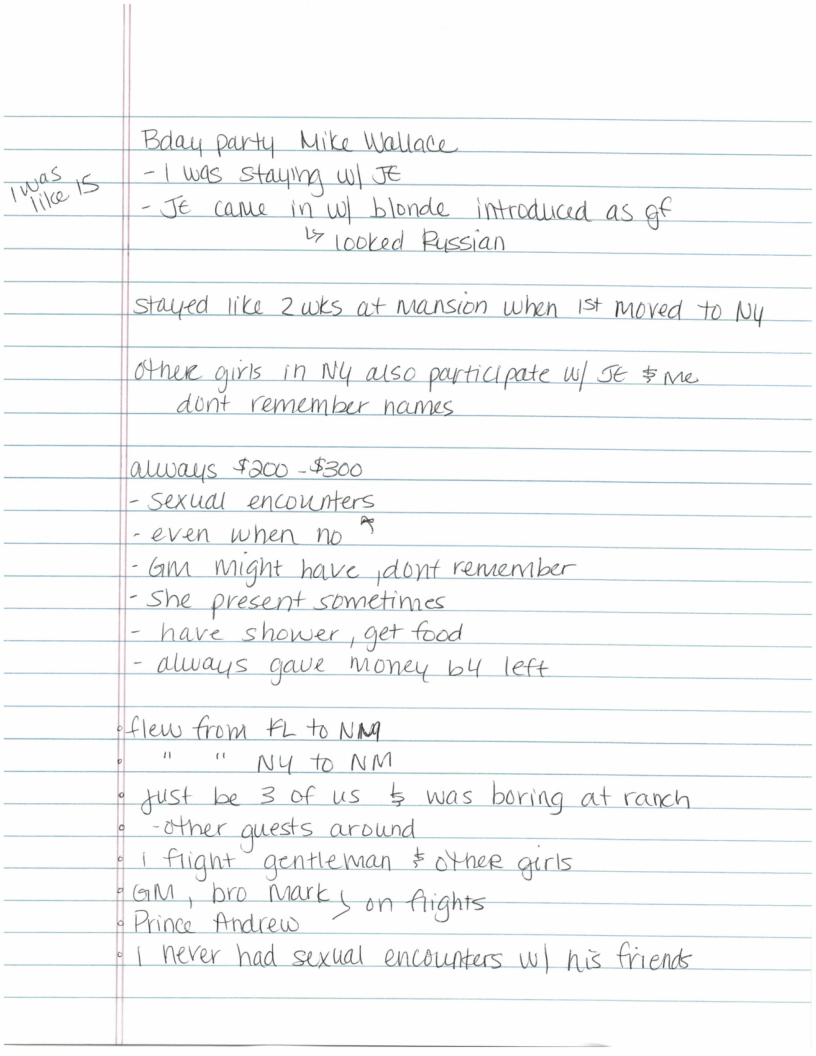 Bday party Mike Wallace
- I was staying w/ JE
I was like 15
- JE came in w/ blonde introduced as gf
↳ looked Russian
stayed like 2 wks at mansion when 1st moved to NY
other girls in NY also participate w/ JE & me
dont remember names
always $200 - $300
- sexual encounters
- even when no ↖
- GM might have, dont remember
- She present sometimes
- have shower, get food
- always gave money b4 left
flew from FL to NM
" " NY to NM
just be 3 of us & was boring at ranch
- other guests around
1 flight gentleman & other girls
GM, bro Mark } on flights
Prince Andrew
I never had sexual encounters w/ his friends